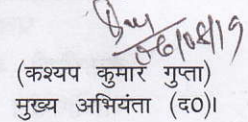 06/08/19
(कश्यप कुमार गुप्ता)
मुख्य अभियंता (द०)।